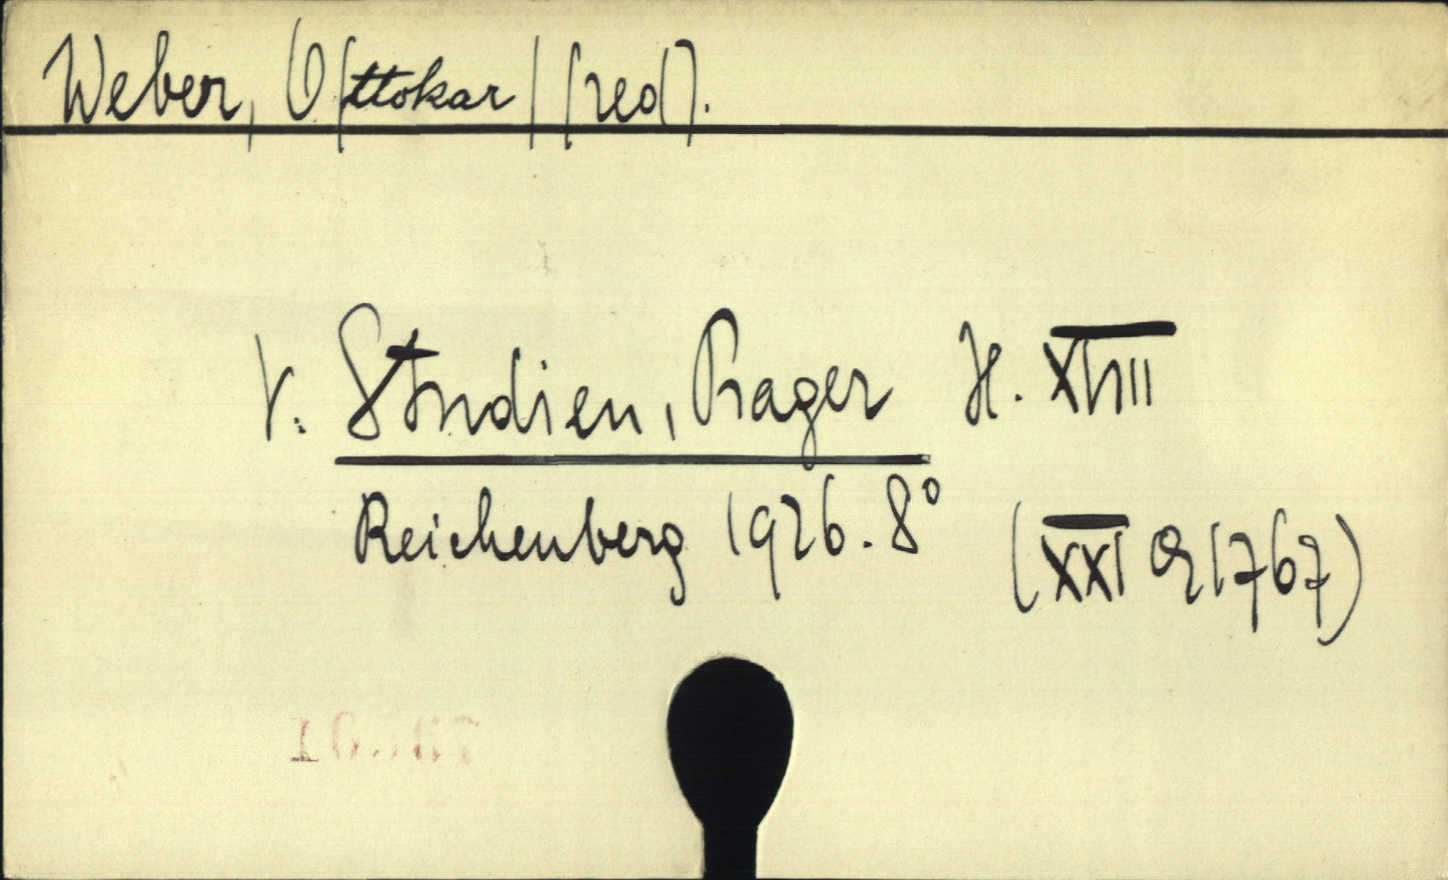 Weber, O(ttokar) (red).
V. Studien, Prager H. XVIII
Reichenberg 1926. 8°
(XXI Q 1767)